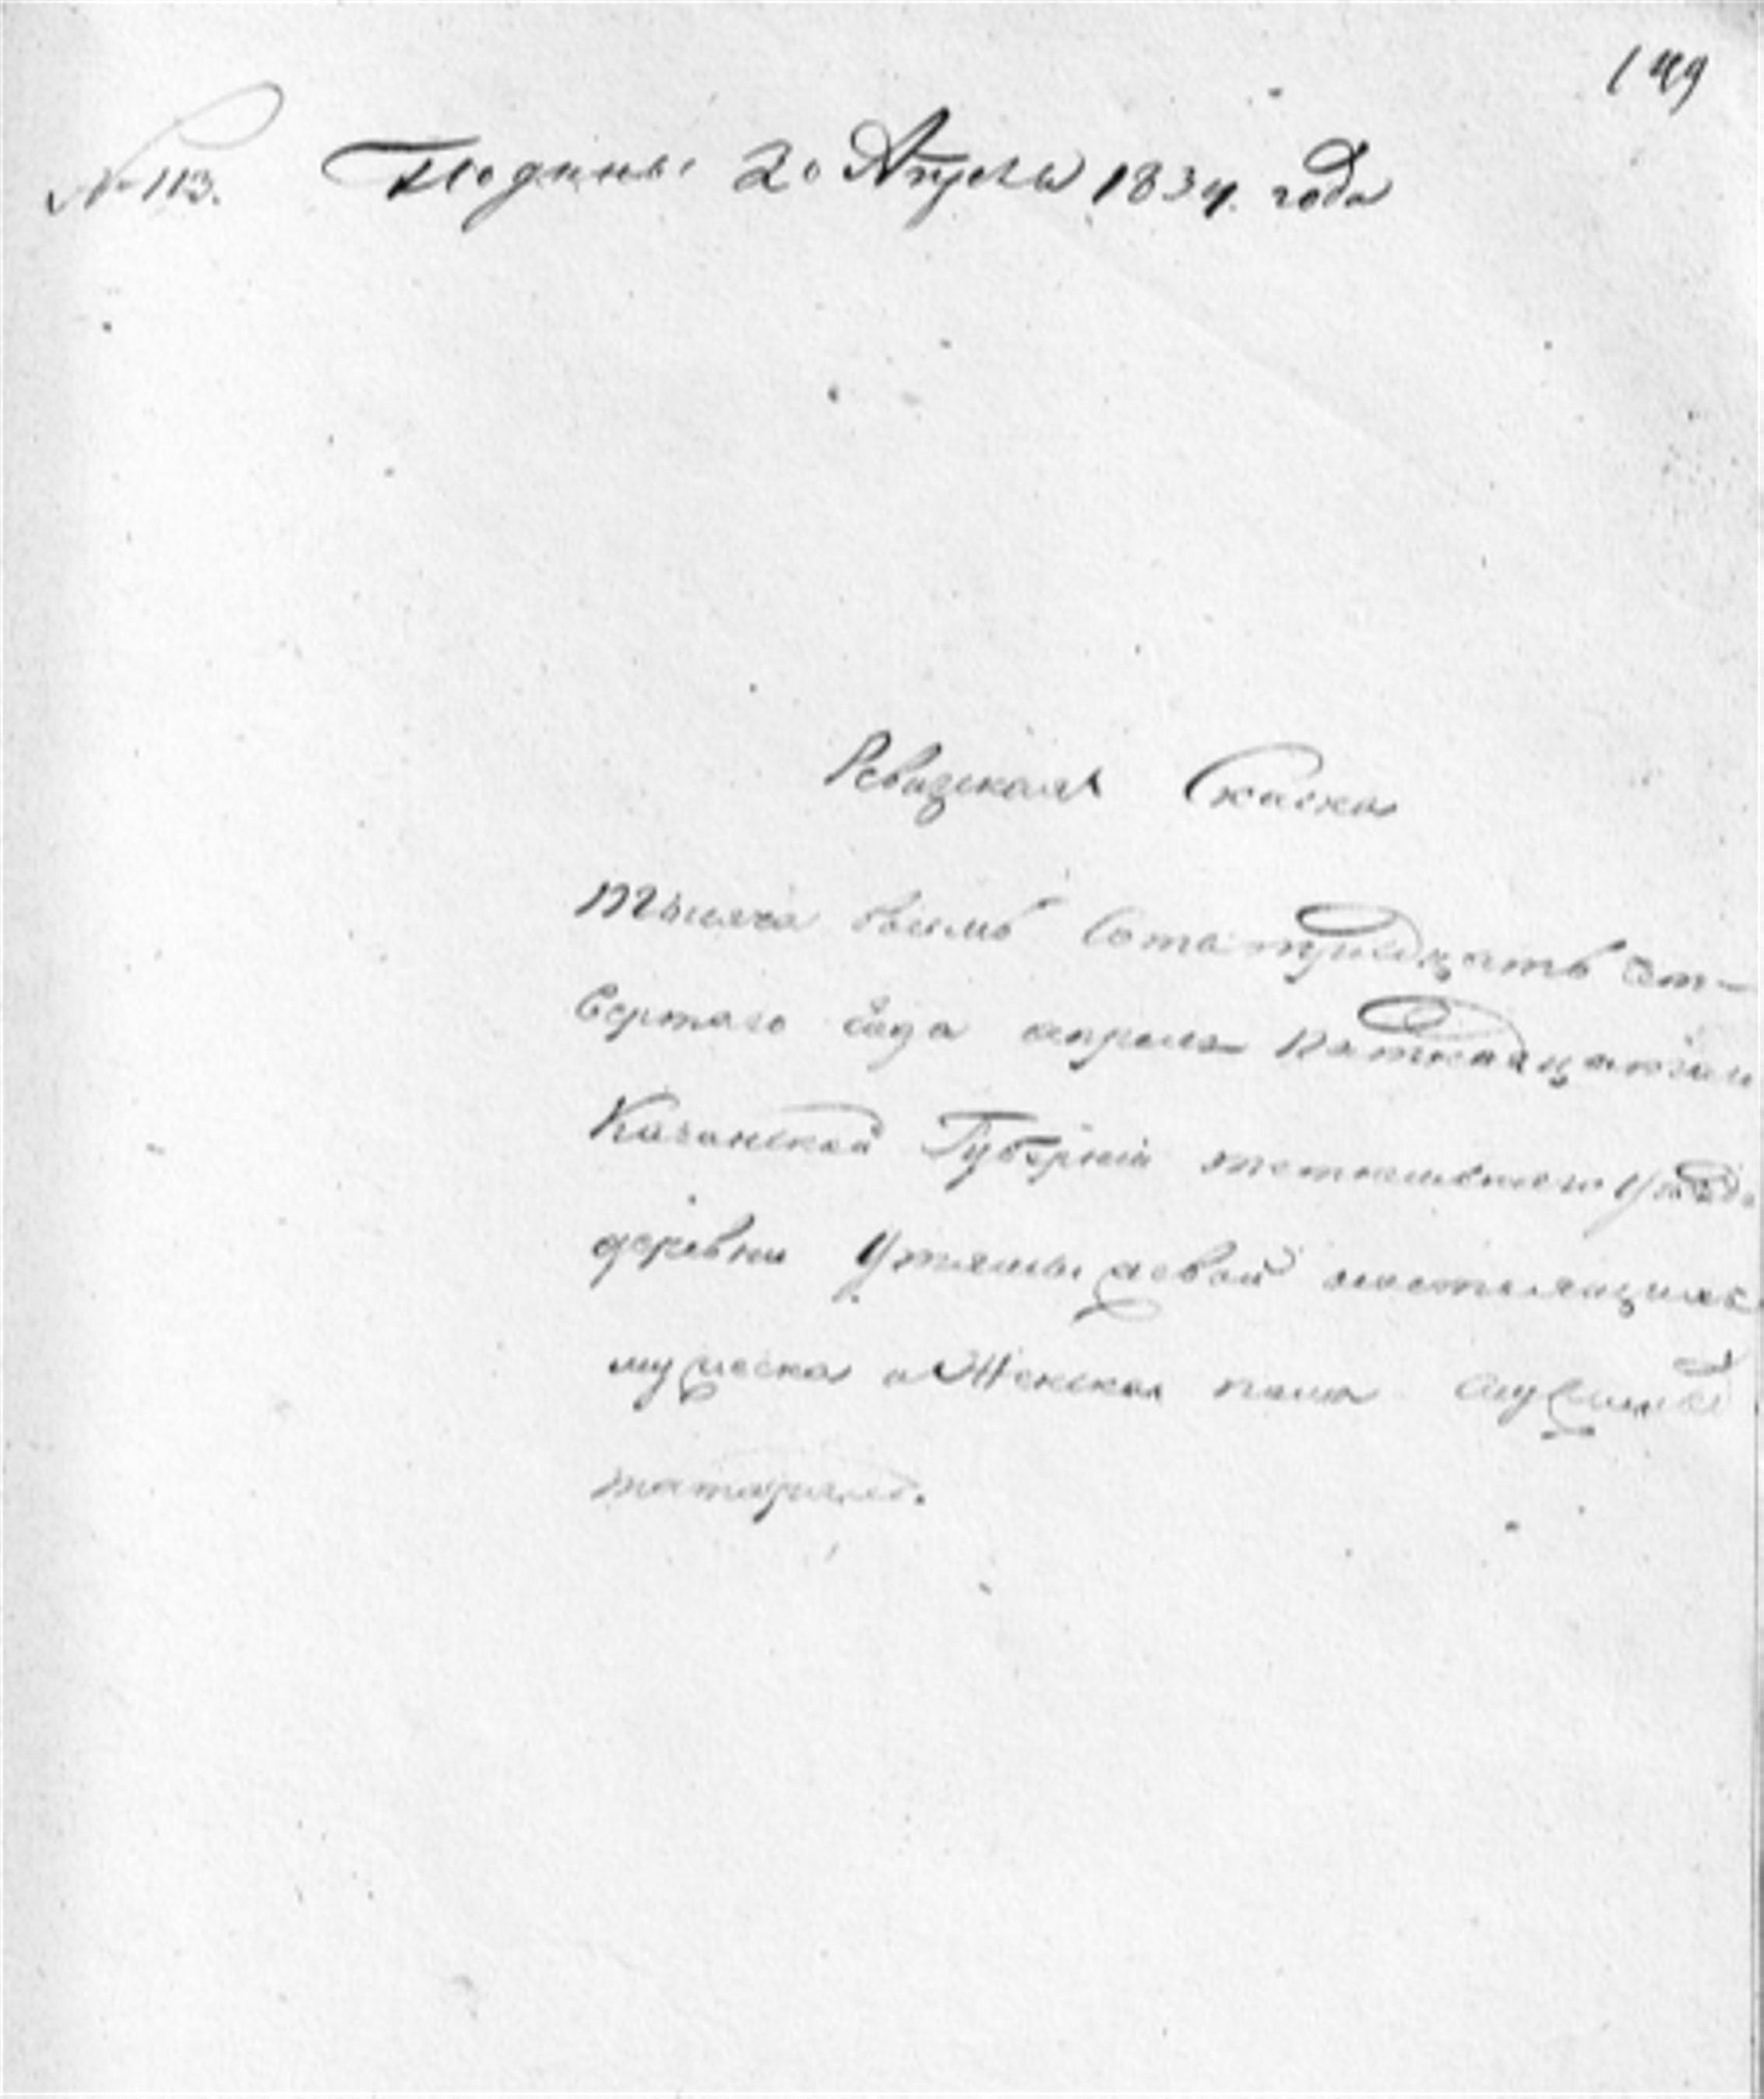 149
№ 113. Подана 20 Апреля 1834. года
Ревизская Скаска
Тысяча восемь сотъ тридцать чет-
вертаго года апреля пятнадцатаго
Казанской Губернии тетюшскаго уезда
деревни Утямышевой состоящихъ
мужеска и Женска пола служилыхъ
татаръ.